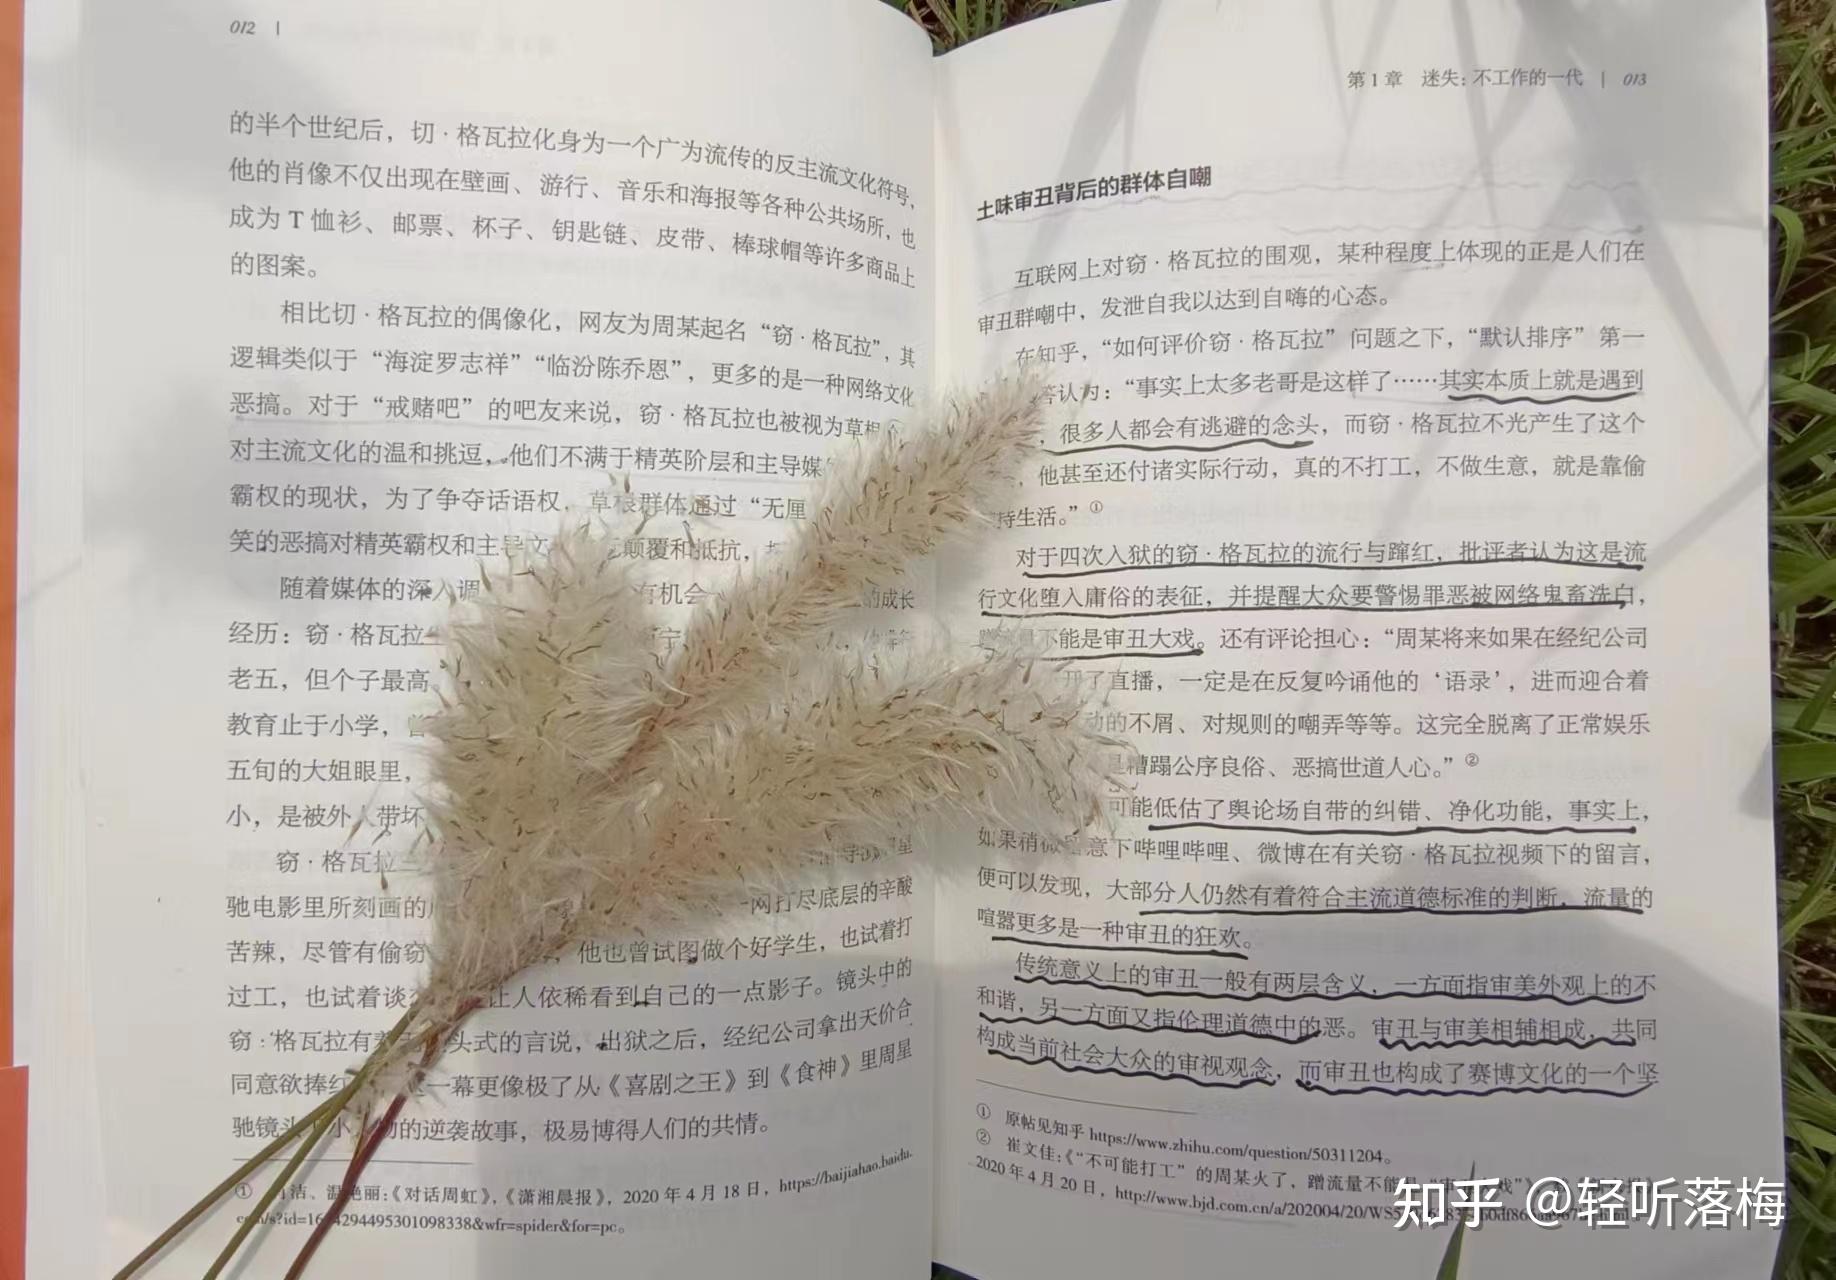 012
的半个世纪后，切·格瓦拉化身为一个广为流传的反主流文化符号，
他的肖像不仅出现在壁画、游行、音乐和海报等各种公共场所，也
成为 T 恤衫、邮票、杯子、钥匙链、皮带、棒球帽等许多商品上
的图案。
相比切·格瓦拉的偶像化，网友为周某起名“窃·格瓦拉”，其
逻辑类似于“海淀罗志祥”“临汾陈乔恩”，更多的是一种网络文化
恶搞。对于“戒赌吧”的吧友来说，窃·格瓦拉也被视为草根
对主流文化的温和挑逗，他们不满于精英阶层和主导媒
霸权的现状，为了争夺话语权，草根群体通过“无厘
笑的恶搞对精英霸权和主导文 颠覆和抵抗，
随着媒体的深入调 有机会 的成长
经历：窃·格瓦拉
老五，但个子最高。
教育止于小学，
五旬的大姐眼里，
小，是被外人带坏
窃·格瓦拉
驰电影里所刻画的 一网打尽底层的辛酸
苦辣，尽管有偷窃 他也曾试图做个好学生，也试着打
过工，也试着谈 让人依稀看到自己的一点影子。镜头中的
窃·格瓦拉有着 头式的言说，出狱之后，经纪公司拿出天价合
同意欲捧红 一幕更像极了从《喜剧之王》到《食神》里周星
驰镜头 小 物的逆袭故事，极易博得人们的共情。
① 洁、温艳丽：《对话周虹》，《潇湘晨报》，2020 年 4 月 18 日，https://baijiahao.baidu.
com/s?id=16 4294495301098338&wfr=spider&for=pc。
第 1 章 迷失：不工作的一代 013
土味审丑背后的群体自嘲
互联网上对窃·格瓦拉的围观，某种程度上体现的正是人们在
审丑群嘲中，发泄自我以达到自嗨的心态。
在知乎，“如何评价窃·格瓦拉”问题之下，“默认排序”第一
答认为：“事实上太多老哥是这样了……其实本质上就是遇到
，很多人都会有逃避的念头，而窃·格瓦拉不光产生了这个
，他甚至还付诸实际行动，真的不打工，不做生意，就是靠偷
持生活。”①
对于四次入狱的窃·格瓦拉的流行与蹿红，批评者认为这是流
行文化堕入庸俗的表征，并提醒大众要警惕罪恶被网络鬼畜洗白，
蹭流量不能是审丑大戏。还有评论担心：“周某将来如果在经纪公司
开了直播，一定是在反复吟诵他的‘语录’，进而迎合着
动的不屑、对规则的嘲弄等等。这完全脱离了正常娱乐
是糟蹋公序良俗、恶搞世道人心。”②
可能低估了舆论场自带的纠错、净化功能，事实上，
如果稍微留意下哔哩哔哩、微博在有关窃·格瓦拉视频下的留言，
便可以发现，大部分人仍然有着符合主流道德标准的判断，流量的
喧嚣更多是一种审丑的狂欢。
传统意义上的审丑一般有两层含义，一方面指审美外观上的不
和谐，另一方面又指伦理道德中的恶。审丑与审美相辅相成，共同
构成当前社会大众的审视观念，而审丑也构成了赛博文化的一个坚
① 原帖见知乎 https://www.zhihu.com/question/50311204。
② 崔文佳：《“不可能打工”的周某火了，蹭流量不能
2020 年 4 月 20 日，http://www.bjd.com.cn/a/202004/20/WS5
知乎 @轻听落梅